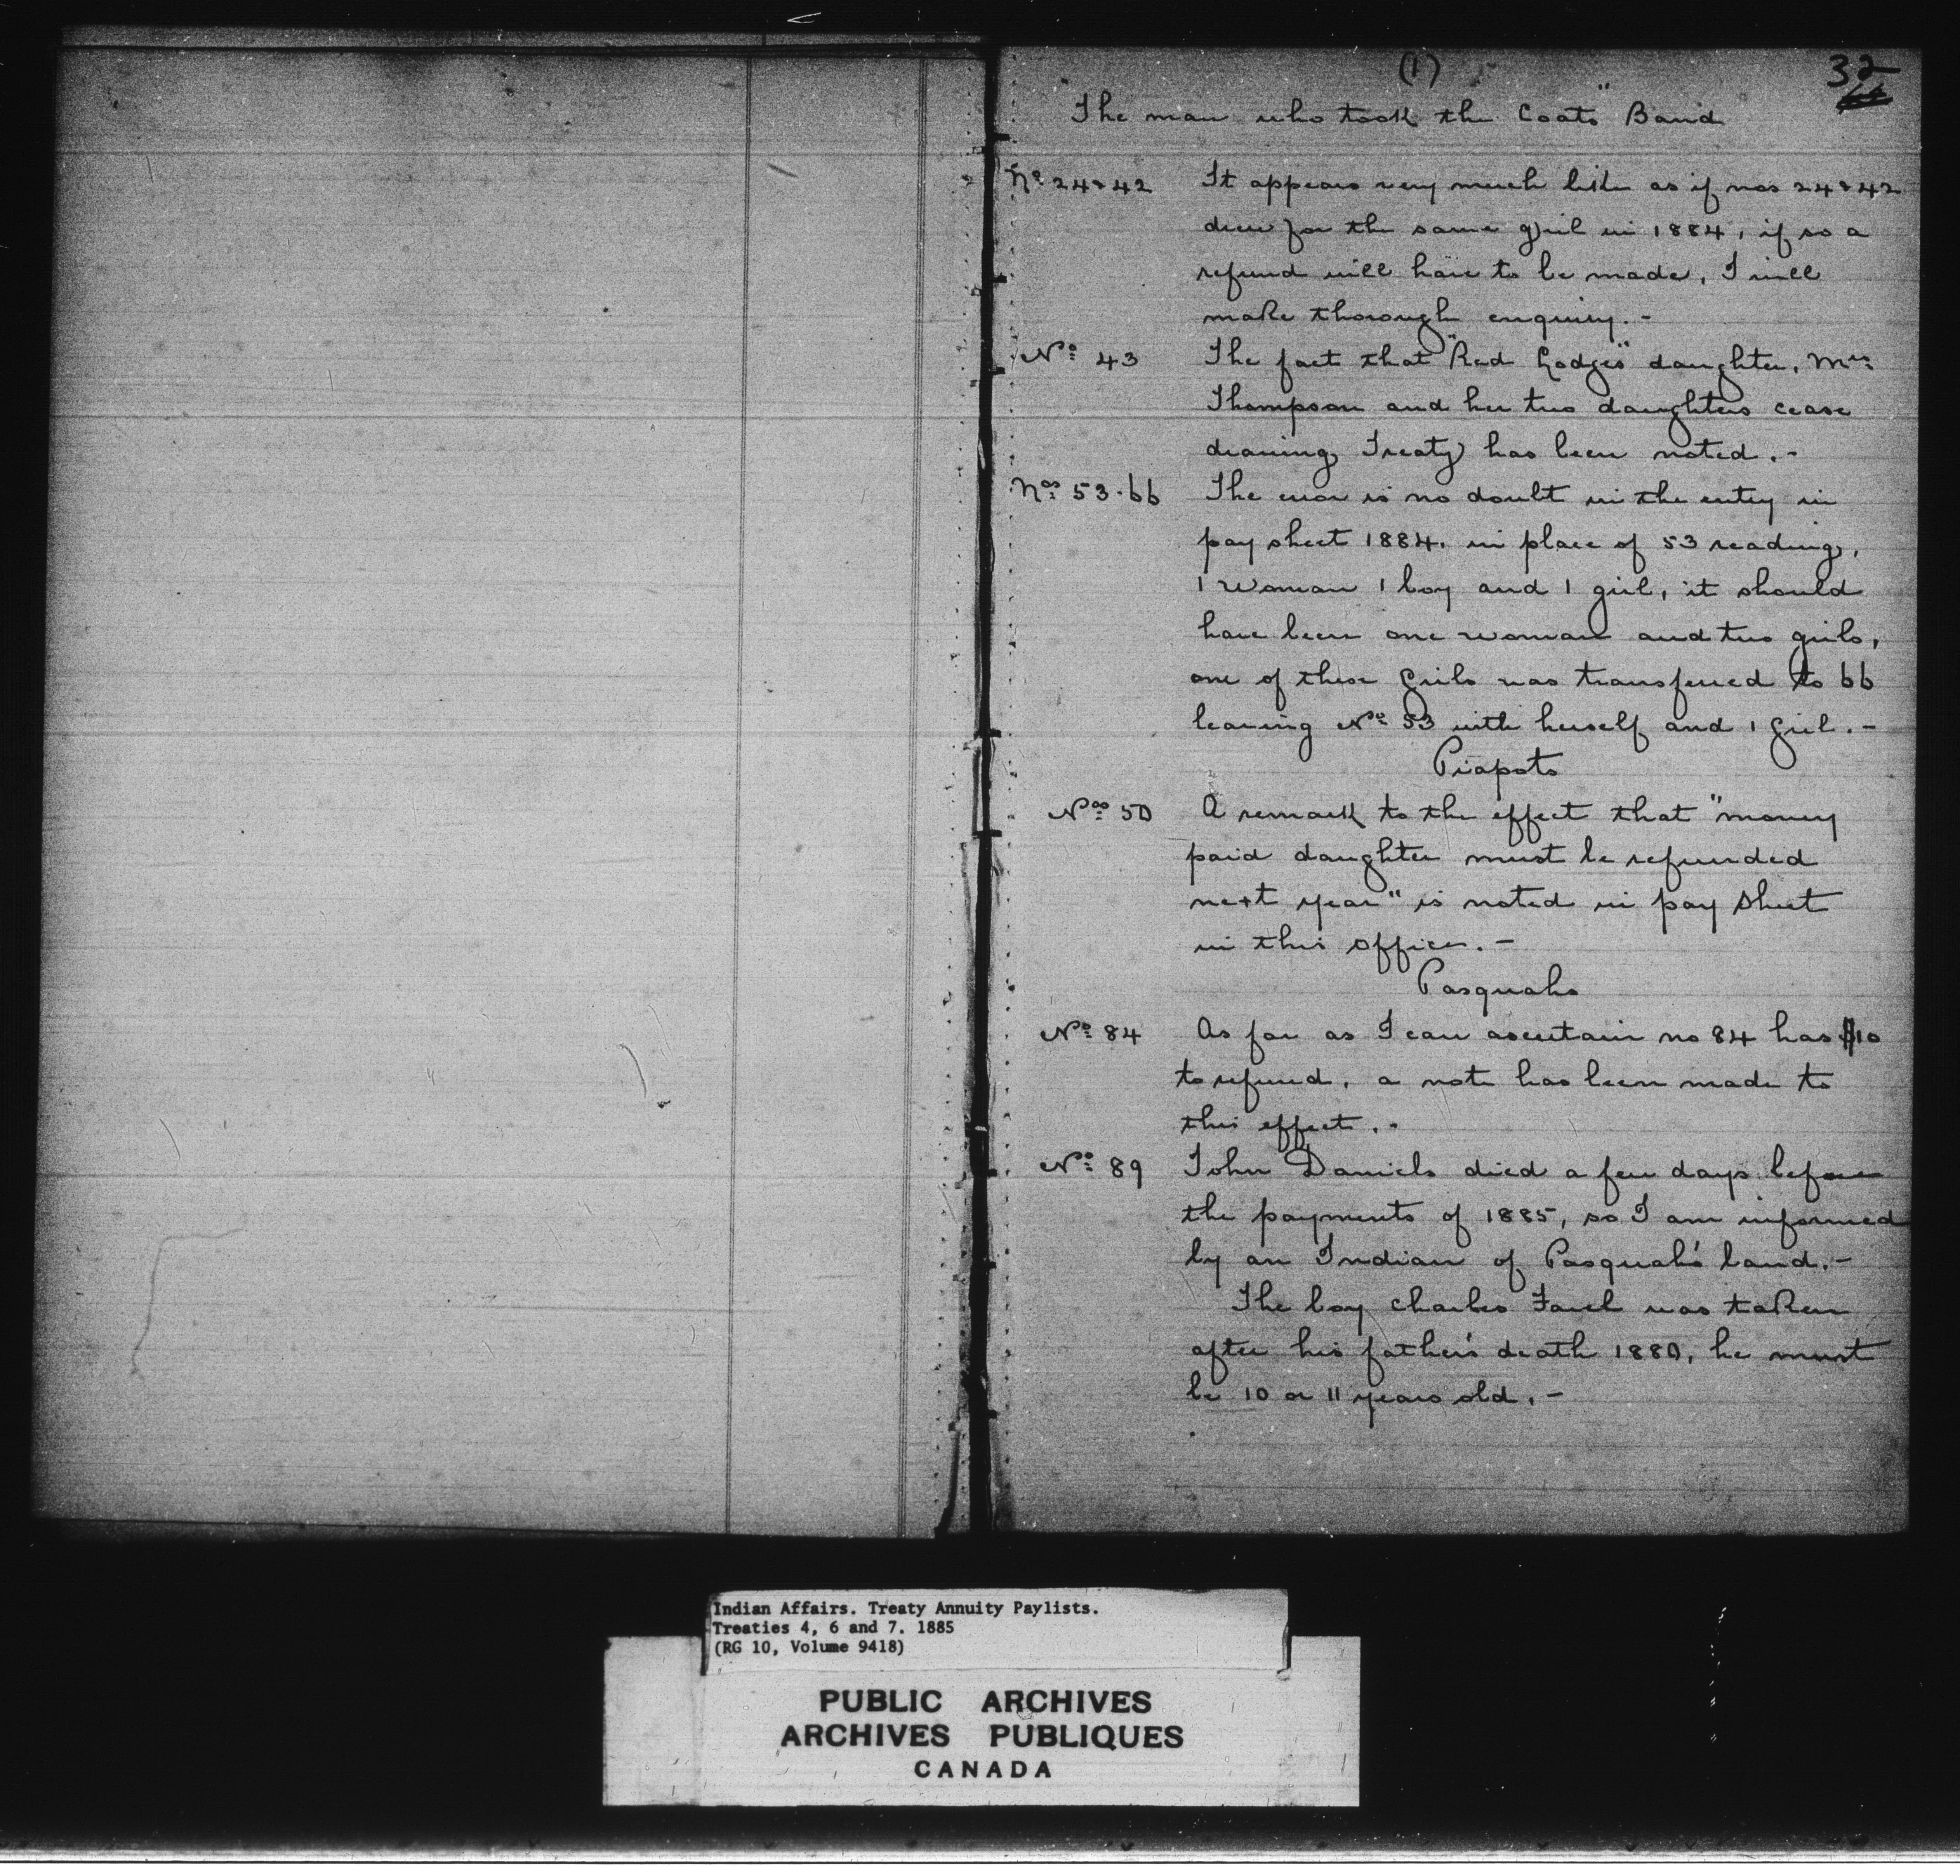 (1)
32
"The man who took the Coats" Band
No 24 & 42 It appears very much like as if nos 24 & 42
drew for the same girl in 1884, if so a
refund will have to be made, I will
make thorough enquiry. -
No 43 The fact that "Red Lodges" daughter, Mrs
Thompson and her two daughters cease
drawing Treaty has been noted. -
Nos 53.66 The error is no doubt in the entry in
pay sheet 1884. in place of 53 reading,
1 woman 1 boy and 1 girl, it should
have been one woman and two girls,
one of these girls was transferred to 66
leaving No 53 with herself and 1 girl. -
Piapots
Nos 50 A remark to the effect that "money
paid daughter must be refunded
next year" is noted in pay sheet
in this office. -
Pasquahs
No 84 As far as I can ascertain no 84 has $10
to refund, a note has been made to
this effect. -
No 89 John Daniels died a few days before
the payments of 1885, so I am informed
by an Indian of Pasquah's band. -
The boy Charles was taken
after his father's death 1880, he must
be 10 or 11 years old. -
Indian Affairs. Treaty Annuity Paylists.
Treaties 4, 6 and 7. 1885
(RG 10, Volume 9418)
PUBLIC ARCHIVES
ARCHIVES PUBLIQUES
CANADA